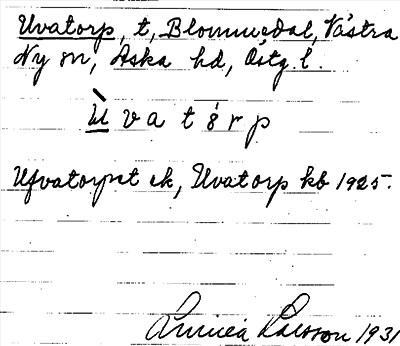 Uvatorp, t, Blommedal, Västra
Ny sn, Aska hd, Östg. l.
Ùvatórp
Ufvatorpet ek, Uvatorp kb 1925.
Linnéa Larsson 1931